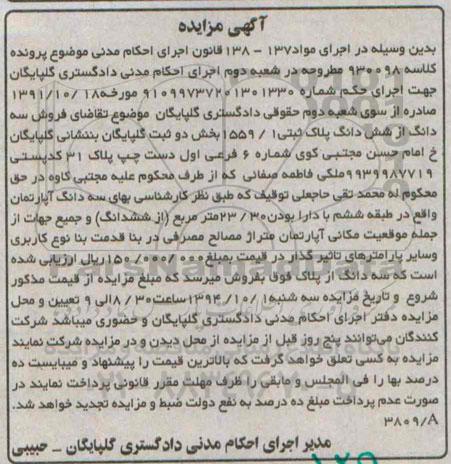 آگهی مزایده
بدین وسیله در اجرای مواد۱۳۷ – ۱۳۸ قانون اجرای احکام مدنی موضوع پرونده
کلاسه ۹۳۰۰۹۸ مطروحه در شعبه دوم اجرای احکام مدنی دادگستری گلپایگان
جهت اجرای حکم شماره ۹۱۰۹۹۷۳۷۲۰۱۳۰۱۳۳۰ مورخه۱۳۹۱/۱۰/۱۸
صادره از سوی شعبه دوم حقوقی دادگستری گلپایگان موضوع تقاضای فروش سه
دانگ از شش دانگ پلاک ثبتی۱ / ۱۵۵۹ بخش دو ثبت گلپایگان بنشانی گلپایگان
خ امام حسن مجتبی کوی شماره ۶ فرعی اول دست چپ پلاک ۳۱ کدپستی
۹۹۳۹۹۸۷۷۱۹ ملکی فاطمه صفائی که از طرف محکوم علیه مجتبی کاوه در حق
محکوم له محمد تقی حاجعلی توقیف که طبق نظر کارشناسی بهای سه دانگ آپارتمان
واقع در طبقه ششم با دارا بودن۲۳/۳۰متر مربع (از ششدانگ) و جمیع جهات از
جمله موقعیت مکانی آپارتمان متراژ مصالح مصرفی در بنا قدمت بنا نوع کاربری
وسایر پارامترهای تاثیر گذار در قیمت بمبلغ۱۵۰/۰۰۰/۰۰۰ریال ارزیابی شده
است که سه دانگ از پلاک فوق بفروش میرسد که مبلغ مزایده از قیمت مذکور
شروع و تاریخ مزایده سه شنبه۱۳۹۴/۱۰/۱ساعت۸/۳۰الی ۹ تعیین و محل
مزایده دفتر اجرای احکام مدنی دادگستری گلپایگان و حضوری میباشد شرکت
کنندگان می‌توانند پنج روز قبل از مزایده از محل دیدن و در مزایده شرکت نمایند
مزایده به کسی تعلق خواهد گرفت که بالاترین قیمت را پیشنهاد و میبایست ده
درصد بها را فی المجلس و مابقی را ظرف مهلت مقرر قانونی پرداخت نمایند در
صورت عدم پرداخت مبلغ ده درصد به نفع دولت ضبط و مزایده تجدید خواهد شد.
۳۸۰۹/A
مدیر اجرای احکام مدنی دادگستری گلپایگان – حبیبی